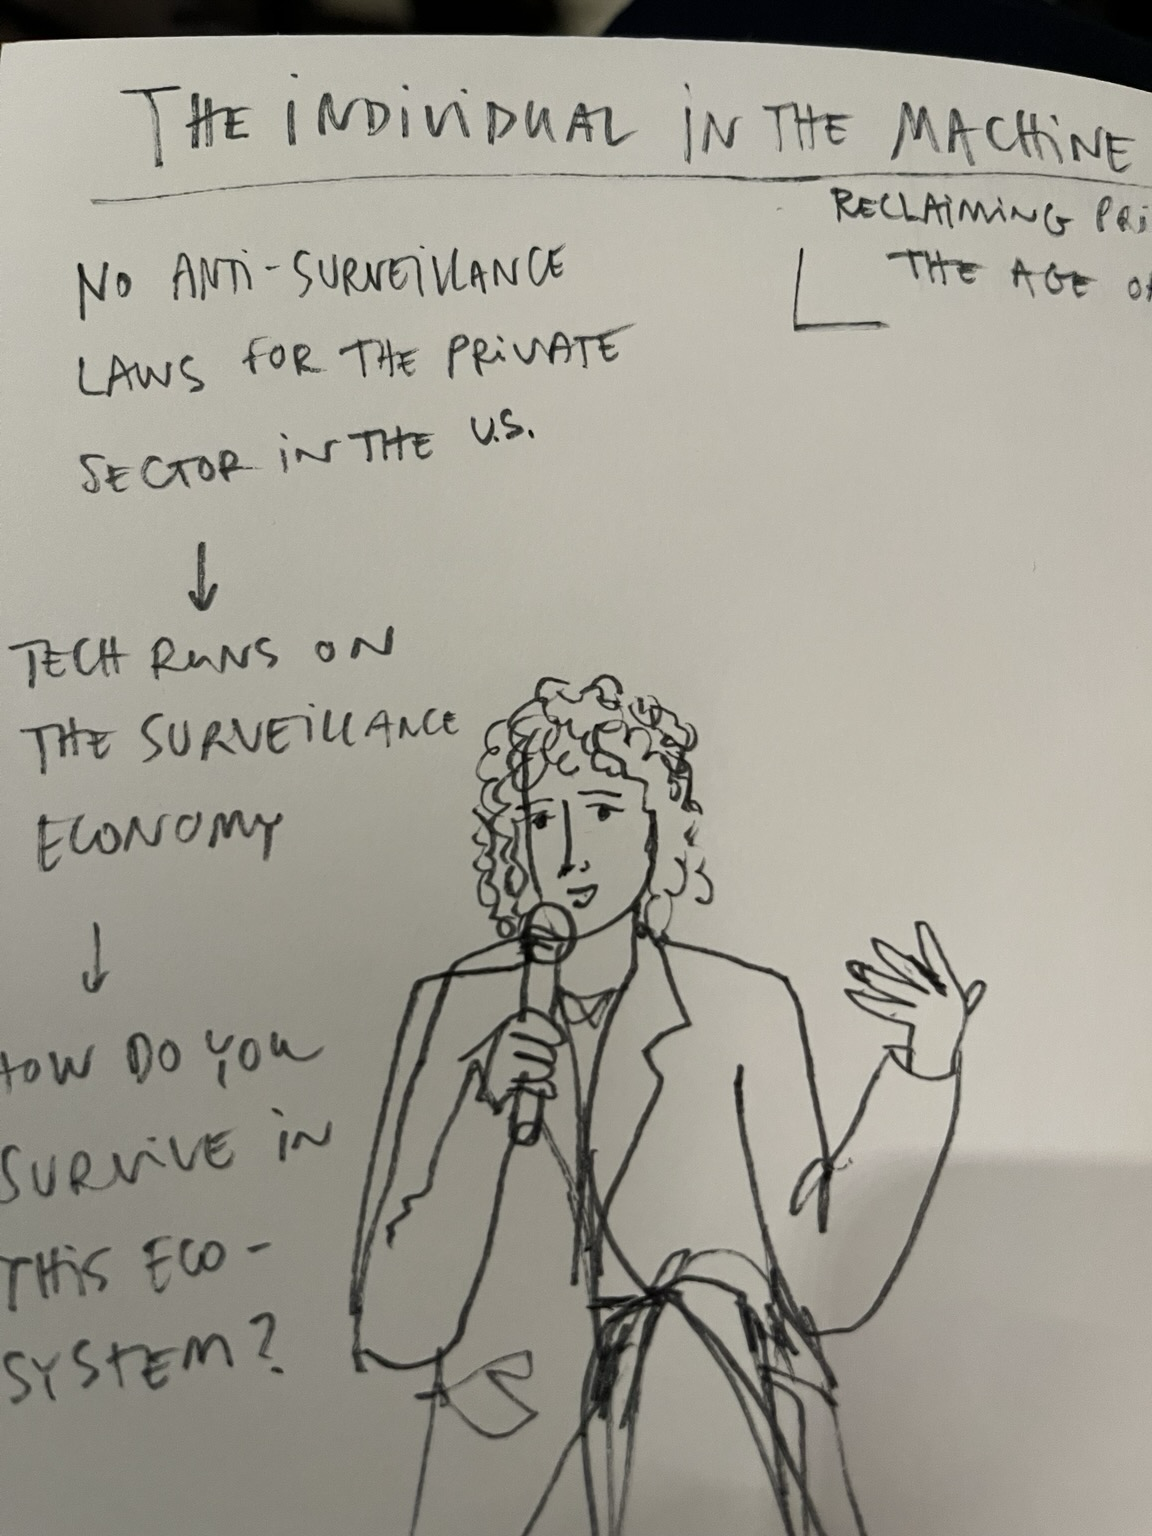 THE INDIVIDUAL IN THE MACHINE
RECLAIMING PRI
THE AGE O
NO ANTI-SURVEILLANCE
LAWS FOR THE PRIVATE
SECTOR IN THE U.S.
TECH RUNS ON
THE SURVEILLANCE
ECONOMY
HOW DO YOU
SURVIVE IN
THIS ECO-
SYSTEM?